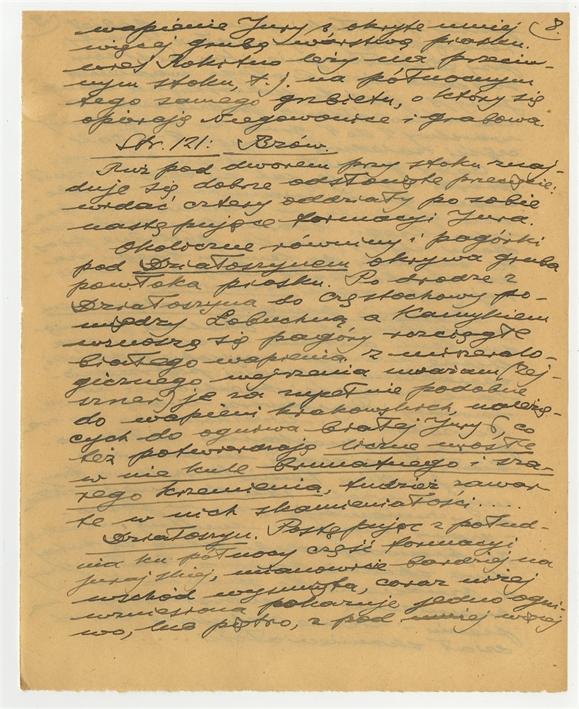 8.
wapienie Jury δ, okryte mniej
więcej grubą warstwą piasku.
wieś Rokitno leży na przeciw-
nym stoku, t.j. na północnym
tego samego grzbietu, o który się
opierają Niegowonice i Grabowa.
Str. 121: Bzów.
Tuż pod dworem przy stoku znaj-
duje się dobrze odsłonięte przecięcie:
widać cztery oddziały po sobie
następujące formacyi Jura.
Okoliczne równiny i pagórki
pod Działoszynem okrywa gruba
powłoka piasku. Po drodze z
Działoszyna do Częstochowy po-
między Łobuchną a Kamykiem
wznoszą się pagóry rozciągłe
białego wapienia, z mineralo-
gicznego wejrzenia uważam (Zej-
szner) je za zupełnie podobne
do wapieni krakowskich, należą-
cych do ogniwa białej Jury δ, co
też potwierdzają liczne wrosłe
w nie kule brunatnego i sza-
rego krzemienia, tudzież zawar-
te w nich skamieniałości ....
Działoszyn. Postępując z połud-
nia ku północy część formacyi
jurajskiej, mianowicie bardziej na
wschód wysunięta, coraz niżej
wzniesiona pokazuje jedno ogni-
wo, lub piętro, z pod mniej więcej